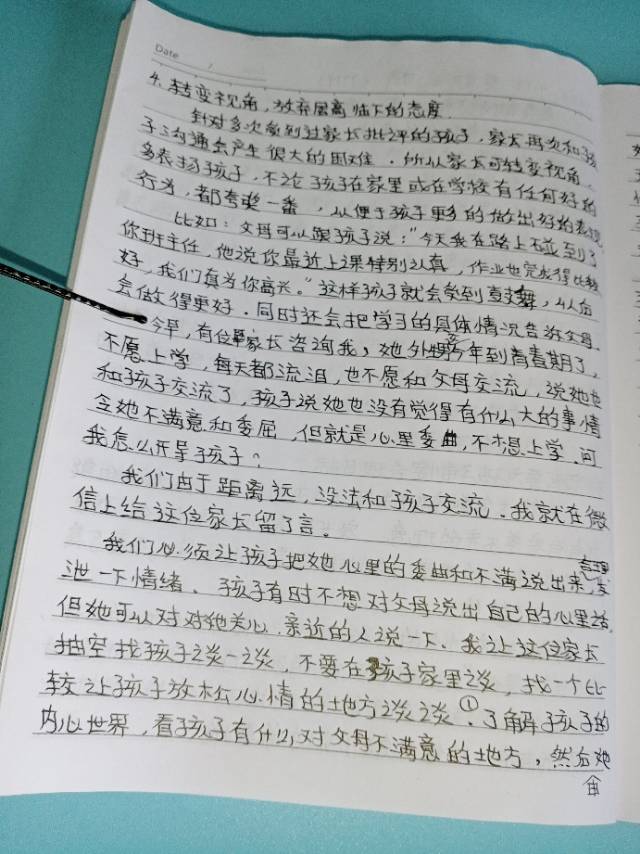 Date
4.转变视角,放弃居高临下的态度.
针对多次受到过家长批评的孩子,家长再次和孩
子沟通会产生很大的困难.所以家长可转变视角.
多表扬孩子,不论孩子在家里或在学校有任何好的
行为,都夸奖一番,以便于孩子更多的做出好的表现.
比如:父母可以跟孩子说:“今天我在路上碰到了
你班主任,他说你最近上课特别认真,作业也完成得比较
好,我们真为你高兴。”这样孩子就会受到鼓舞,从而
会做得更好.同时还会把学习的具体情况告诉父母.
今早,有位家长咨询我,她外甥女今年到青春期了,
不愿上学,每天都流泪,也不愿和父母交流,说她也
和孩子交流了,孩子说她也没有觉得有什么大的事情
令她不满意和委屈,但就是心里委曲,不想上学.问
我怎么开导孩子?
我们由于距离远.没法和孩子交流.我就在微
信上给这位家长留了言。
我们必须让孩子把她心里的委曲和不满说出来,发
泄一下情绪.孩子有时不想对父母说出自己的心里话.
但她可以对对她关心.亲近的人说一下.我让这位家长
抽空找孩子谈一谈,不要在孩子家里谈,找一个比
较让孩子放松心情的地方谈谈.①了解孩子的
内心世界,看孩子有什么对父母不满意的地方,然后她